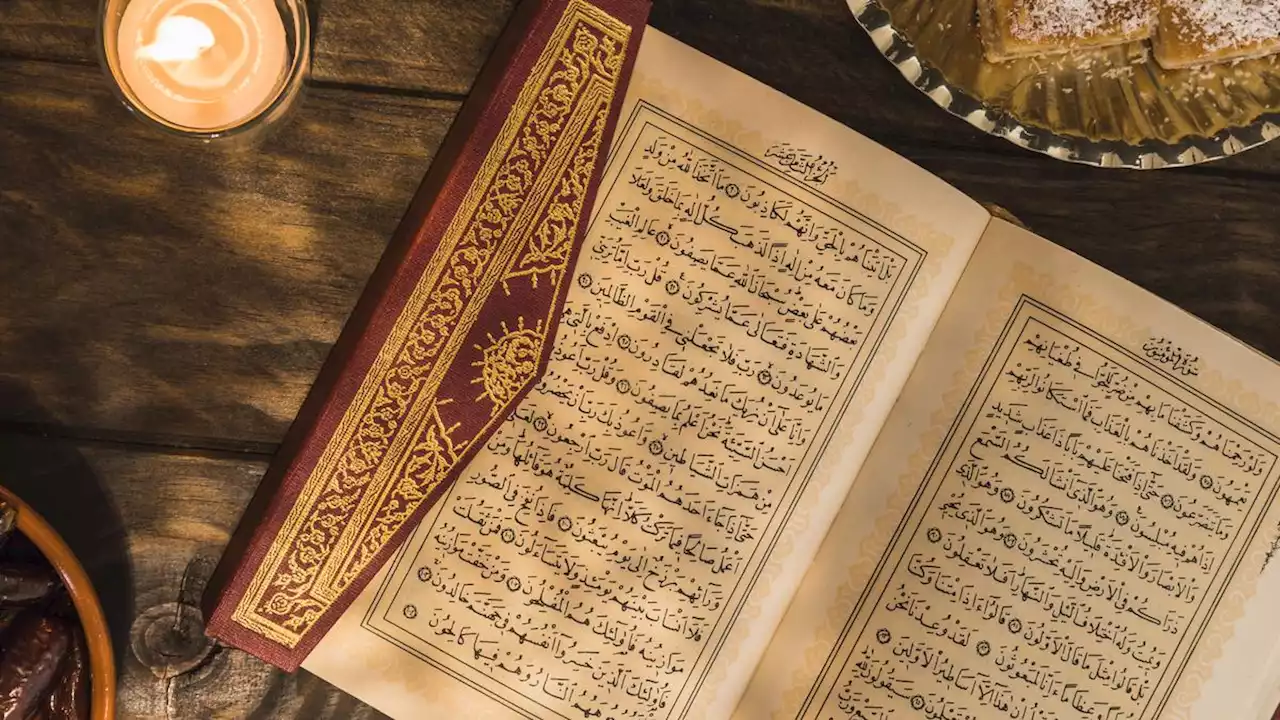 سُورَةُ الْمُؤْمِنُونَ
وَلَوْ رَحِمْنَاهُمْ وَكَشَفْنَا مَا بِهِمْ مِنْ ضُرٍّ لَلَجُّوا فِي طُغْيَانِهِمْ
يَعْمَهُونَ ۝ وَلَقَدْ أَخَذْنَاهُمْ بِالْعَذَابِ فَمَا اسْتَكَانُوا لِرَبِّهِمْ
وَمَا يَتَضَرَّعُونَ ۝ حَتَّى إِذَا فَتَحْنَا عَلَيْهِمْ بَابًا ذَا عَذَابٍ شَدِيدٍ
إِذَا هُمْ فِيهِ مُبْلِسُونَ ۝ وَهُوَ الَّذِي أَنْشَأَ لَكُمُ السَّمْعَ
وَالْأَبْصَارَ وَالْأَفْئِدَةَ قَلِيلًا مَا تَشْكُرُونَ ۝ وَهُوَ الَّذِي
ذَرَأَكُمْ فِي الْأَرْضِ وَإِلَيْهِ تُحْشَرُونَ ۝ وَهُوَ الَّذِي يُحْيِي
وَيُمِيتُ وَلَهُ اخْتِلَافُ اللَّيْلِ وَالنَّهَارِ أَفَلَا تَعْقِلُونَ ۝
بَلْ قَالُوا مِثْلَ مَا قَالَ الْأَوَّلُونَ ۝ قَالُوا أَإِذَا مِتْنَا وَكُنَّا
تُرَابًا وَعِظَامًا أَإِنَّا لَمَبْعُوثُونَ ۝ لَقَدْ وُعِدْنَا نَحْنُ
هَذَا إِلَّا أَسَاطِيرُ الْأَوَّلِينَ ۝
تَعْلَمُونَ ۝ سَيَقُولُونَ لِلَّهِ
الْجُزْءُ الثَّامِنَ عَشَرَ
بَلْ أَتَيْنَاهُمْ بِالْحَقِّ وَإِنَّهُمْ لَكَاذِبُونَ ۝ مَا اتَّخَذَ اللَّهُ مِنْ وَلَدٍ
وَمَا كَانَ مَعَهُ مِنْ إِلَهٍ إِذًا لَذَهَبَ كُلُّ إِلَهٍ بِمَا خَلَقَ وَلَعَلَا
بَعْضُهُمْ عَلَى بَعْضٍ سُبْحَانَ اللَّهِ عَمَّا يَصِفُونَ ۝ عَالِمِ الْغَيْبِ
وَالشَّهَادَةِ فَتَعَالَى عَمَّا يُشْرِكُونَ ۝ قُلْ رَبِّ إِمَّا تُرِيَنِّي
مَا يُوعَدُونَ ۝ رَبِّ فَلَا تَجْعَلْنِي فِي الْقَوْمِ الظَّالِمِينَ ۝
وَإِنَّا عَلَى أَنْ نُرِيَكَ مَا نَعِدُهُمْ لَقَادِرُونَ ۝ ادْفَعْ بِالَّتِي هِيَ
أَحْسَنُ السَّيِّئَةَ نَحْنُ أَعْلَمُ بِمَا يَصِفُونَ ۝ وَقُلْ رَبِّ أَعُوذُ بِكَ
مِنْ هَمَزَاتِ الشَّيَاطِينِ ۝ وَأَعُوذُ بِكَ رَبِّ أَنْ يَحْضُرُونِ ۝
حَتَّى إِذَا جَاءَ أَحَدَهُمُ الْمَوْتُ قَالَ رَبِّ ارْجِعُونِ ۝ لَعَلِّي
أَعْمَلُ صَالِحًا فِيمَا تَرَكْتُ كَلَّا إِنَّهَا كَلِمَةٌ هُوَ قَائِلُهَا وَمِنْ
وَرَائِهِمْ بَرْزَخٌ إِلَى يَوْمِ يُبْعَثُونَ ۝ فَإِذَا نُفِخَ فِي الصُّورِ
فَلَا أَنْسَابَ بَيْنَهُمْ يَوْمَئِذٍ وَلَا يَتَسَاءَلُونَ ۝ فَمَنْ ثَقُلَتْ
مَوَازِينُهُ فَأُولَئِكَ هُمُ الْمُفْلِحُونَ ۝ وَمَنْ خَفَّتْ مَوَازِينُهُ
فَأُولَئِكَ الَّذِينَ خَسِرُوا أَنْفُسَهُمْ فِي جَهَنَّمَ خَالِدُونَ ۝
تَلْفَحُ وُجُوهَهُمُ النَّارُ وَهُمْ فِيهَا كَالِحُونَ ۝